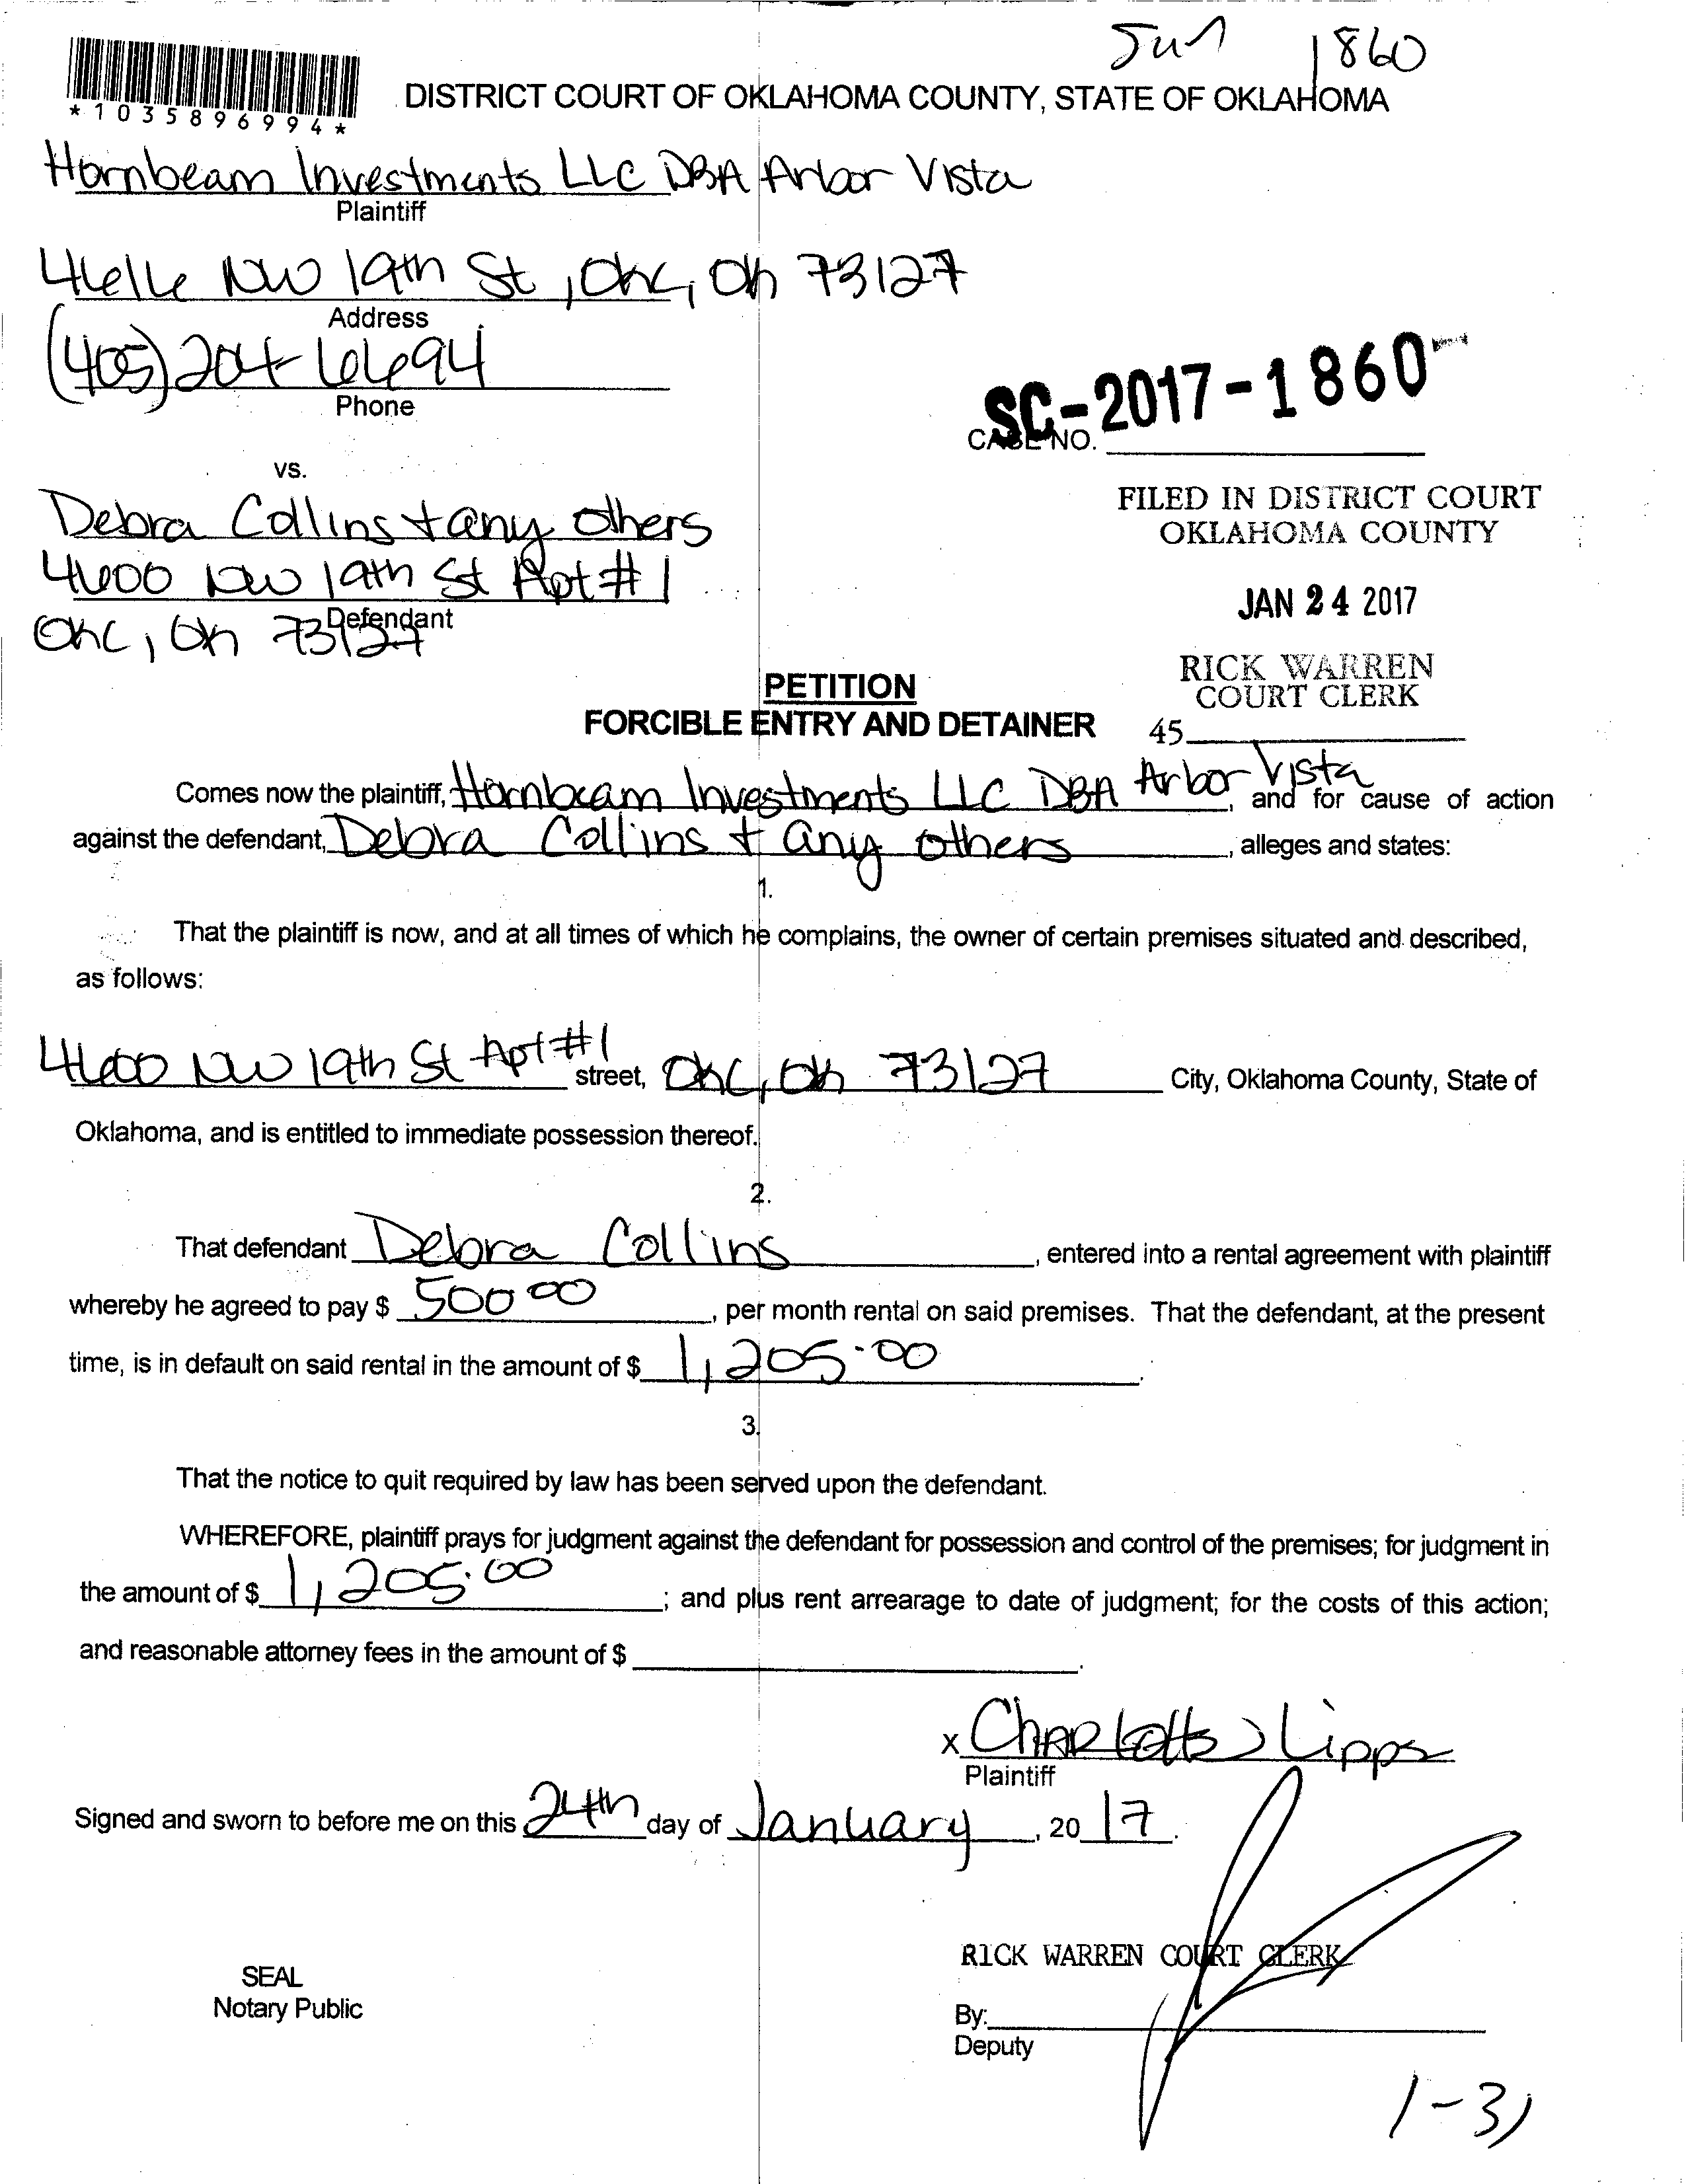 Jun 1860
*1035896994*
DISTRICT COURT OF OKLAHOMA COUNTY, STATE OF OKLAHOMA
Hornbeam Investments LLC DBA Arbor Vista
Plaintiff
4616 NW 19th St, OKC, OK 73127
Address
(405) 204-6694
Phone
SC-2017-1860
CASE NO.
vs.
Debra Collins + any others
4600 NW 19th St Apt #1
Defendant
OKC, OK 73127
FILED IN DISTRICT COURT
OKLAHOMA COUNTY
JAN 24 2017
RICK WARREN
COURT CLERK
45
PETITION
FORCIBLE ENTRY AND DETAINER
Comes now the plaintiff, Hornbeam Investments LLC DBA Arbor Vista, and for cause of action
against the defendant, Debra Collins + any others, alleges and states:
1.
That the plaintiff is now, and at all times of which he complains, the owner of certain premises situated and described,
as follows:
4600 NW 19th St Apt #1 street, OKC, OK 73127 City, Oklahoma County, State of
Oklahoma, and is entitled to immediate possession thereof.
2.
That defendant Debra Collins, entered into a rental agreement with plaintiff
whereby he agreed to pay $ 500 00, per month rental on said premises. That the defendant, at the present
time, is in default on said rental in the amount of $ 1,205.00.
3.
That the notice to quit required by law has been served upon the defendant.
WHEREFORE, plaintiff prays for judgment against the defendant for possession and control of the premises; for judgment in
the amount of $ 1,205.00; and plus rent arrearage to date of judgment; for the costs of this action;
and reasonable attorney fees in the amount of $ .
x Charlotte Lipps
Plaintiff
Signed and sworn to before me on this 24th day of January, 2017.
RICK WARREN COURT CLERK
SEAL
Notary Public
By:
Deputy
1-31